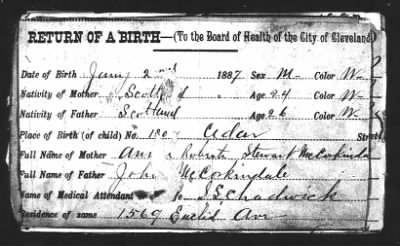 RETURN OF A BIRTH—(To the Board of Health of the City of Cleveland)
Date of Birth 2nd 1887. Sex M- Color W-
Nativity of Mother Age 24 Color W-
Nativity of Father Scotland Age 26 Color W-
Place of Birth (of child) No. Cedar Street
Full Name of Mother Roberta Stewart McCorkindale
Full Name of Father John McCorkindale
Name of Medical Attendant Chadwick
Residence of same 1569 Euclid Ave